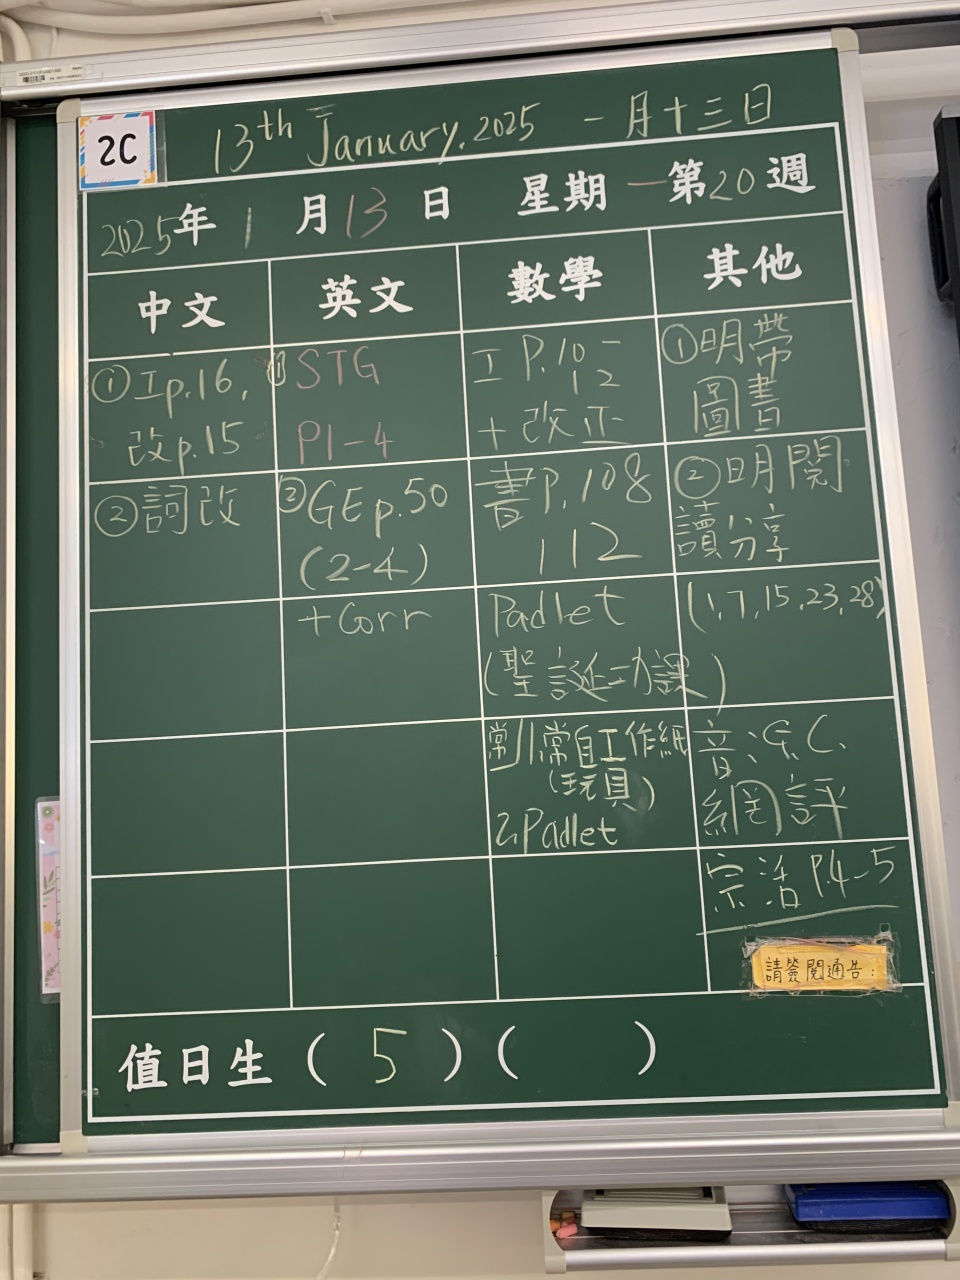 2C
13th January, 2025 一月十三日
2025年 1 月 13 日 星期 一 第 20 週
中文 英文 數學 其他
①工p.16,
改p.15
②詞改
①STG
P1-4
②GE p.50
(2-4)
+Corr
工 P.10-
12
+ 改正
書P.108
112
Padlet
(聖誕功課)
常 1.常自工作紙
(玩具)
2.Padlet
①明帶
圖書
②明閱
讀分享
(1,7,15,23,28)
音:G.C.
網評
宗活 P.4-5
請簽閱通告:
值日生 ( 5 ) ( )